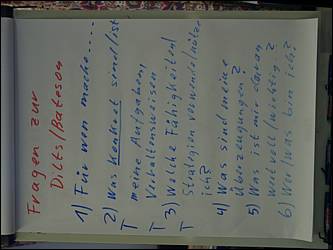 Fragen zur
Dilts/Bateson
1) Für wen mache....
2) Was konkret sind/ist
T meine Aufgaben/
Verhaltensweisen
T
3) Welche Fähigkeiten/
T Strategien verwende/nütze
ich?
4) Was sind meine
Überzeugungen?
5) Was ist mir daran
wertvoll/wichtig?
6) Wer/was bin ich?